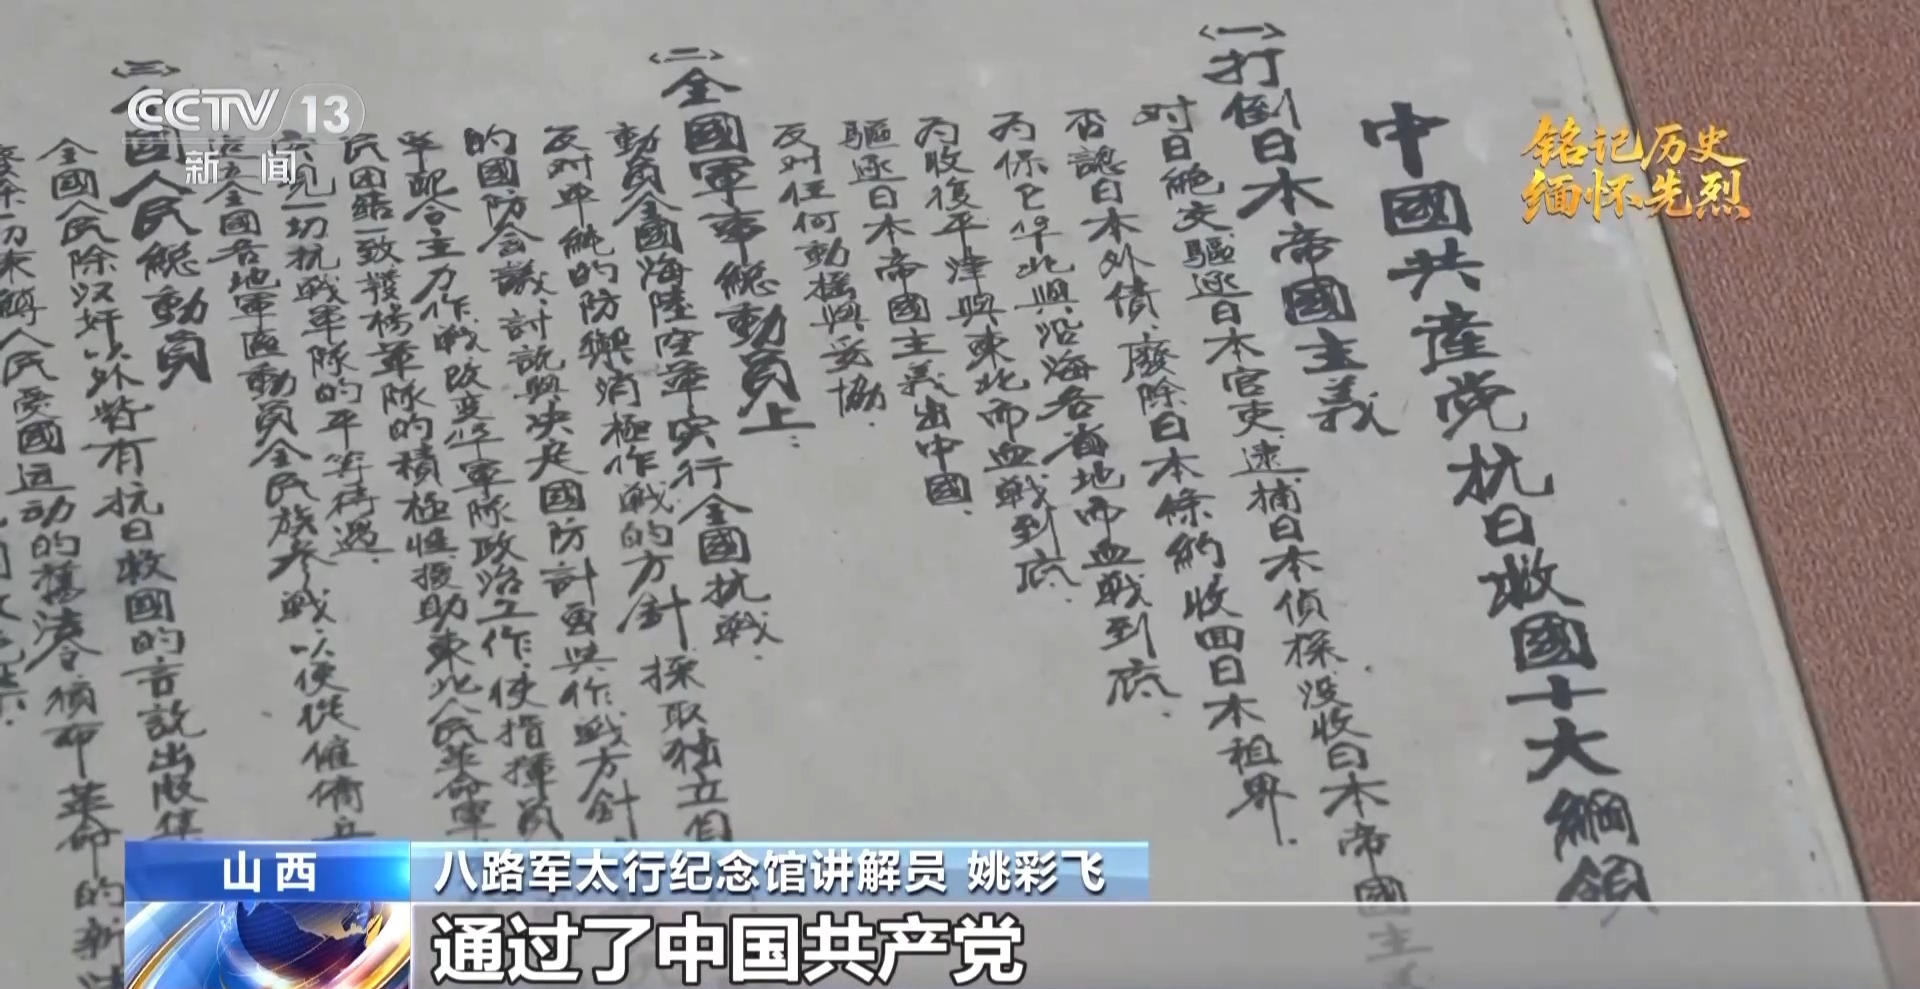 CCTV 13
新闻
铭记历史
缅怀先烈
中國共産党抗日救國十大綱領
〈一〉打倒日本帝國主義
对日絶交驅逐日本官吏逮捕日本偵探.没收日本帝國主義
否認日本外債.廢除日本條約收囬日本租界.
为保卫华北與沿海各省地而血戰到底.
为收復平津與東北而血戰到底.
驅逐日本帝國主義出中國.
反对任何動摇與妥協.
〈二〉全國軍事總動員上:
動員全國海陸空軍实行全國抗戰.
反对单純的防禦消極作戰的方針.採取独立自
的國防会議.討説與决定國防計畫與作戰方針.
配合主力作戰改变军隊政治工作.使指揮員
民团結一致發揚軍隊的積極性援助東北人民革命軍
实現一切抗戰軍隊的平等待遇.
建立全國各地軍區動員全民族参戰.以便從僱傭兵
〈三〉全國人民總動員
全國人民除汉奸以外皆有抗日救國的言說出版集
廢除一切束縛人民愛國运动的舊法令頒布革命的新法
山西
八路军太行纪念馆讲解员 姚彩飞
通过了中国共产党